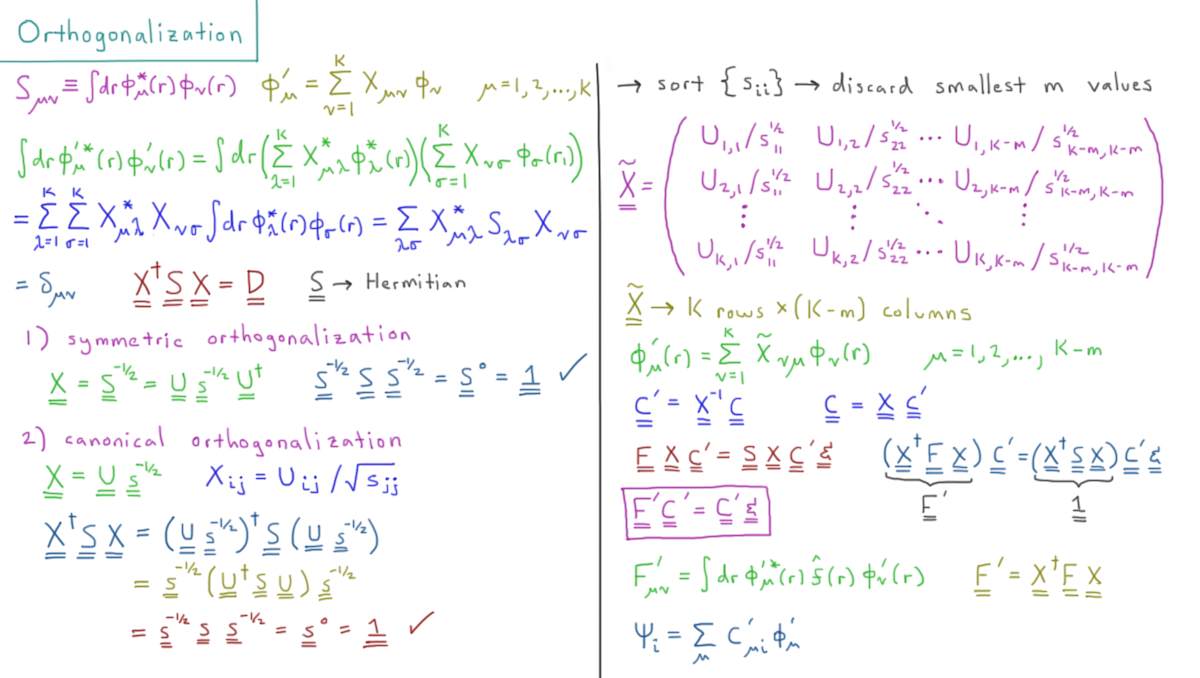 Orthogonalization
S_μν ≡ ∫dr ϕ_μ^*(r) ϕ_ν(r)   ϕ'_μ = Σ_{ν=1}^{K} X_μν ϕ_ν   μ=1,2,...,K
∫dr ϕ'_μ^*(r) ϕ'_ν(r) = ∫dr (Σ_{λ=1}^{K} X_μλ^* ϕ_λ^*(r)) (Σ_{σ=1}^{K} X_νσ ϕ_σ(r_1))
= Σ_{λ=1}^{K} Σ_{σ=1}^{K} X_μλ^* X_νσ ∫dr ϕ_λ^*(r) ϕ_σ(r) = Σ_{λσ} X_μλ^* S_λσ X_νσ
= δ_μν   X† S X = D   S → Hermitian
1) symmetric orthogonalization
X = S^{-1/2} = U s^{-1/2} U†   S^{-1/2} S S^{-1/2} = S^0 = 1 ✓
2) canonical orthogonalization
X = U s^{-1/2}   X_ij = U_ij / √s_jj
X† S X = (U s^{-1/2})† S (U s^{-1/2})
= s^{-1/2} (U† S U) s^{-1/2}
= s^{-1/2} s s^{-1/2} = s^0 = 1 ✓
→ sort {s_ii} → discard smallest m values
U_{1,1}/s_{11}^{1/2}   U_{1,2}/s_{22}^{1/2} ... U_{1,K-m}/s_{K-m,K-m}^{1/2}
X̃ = U_{2,1}/s_{11}^{1/2}   U_{2,2}/s_{22}^{1/2} ... U_{2,K-m}/s_{K-m,K-m}^{1/2}
⋮   ⋮   ⋱   ⋮
U_{K,1}/s_{11}^{1/2}   U_{K,2}/s_{22}^{1/2} ... U_{K,K-m}/s_{K-m,K-m}^{1/2}
X̃ → K rows × (K-m) columns
ϕ'_μ(r) = Σ_{ν=1}^{K} X̃_νμ ϕ_ν(r)   μ=1,2,..., K-m
C' = X^{-1} C   C = X C'
F X C' = S X C' ε   (X† F X) C' = (X† S X) C' ε
F'   1
F' C' = C' ε
F'_μν = ∫dr ϕ'_μ^*(r) f̂(r) ϕ'_ν(r)   F' = X† F X
Ψ_i = Σ_μ C'_μi ϕ'_μ